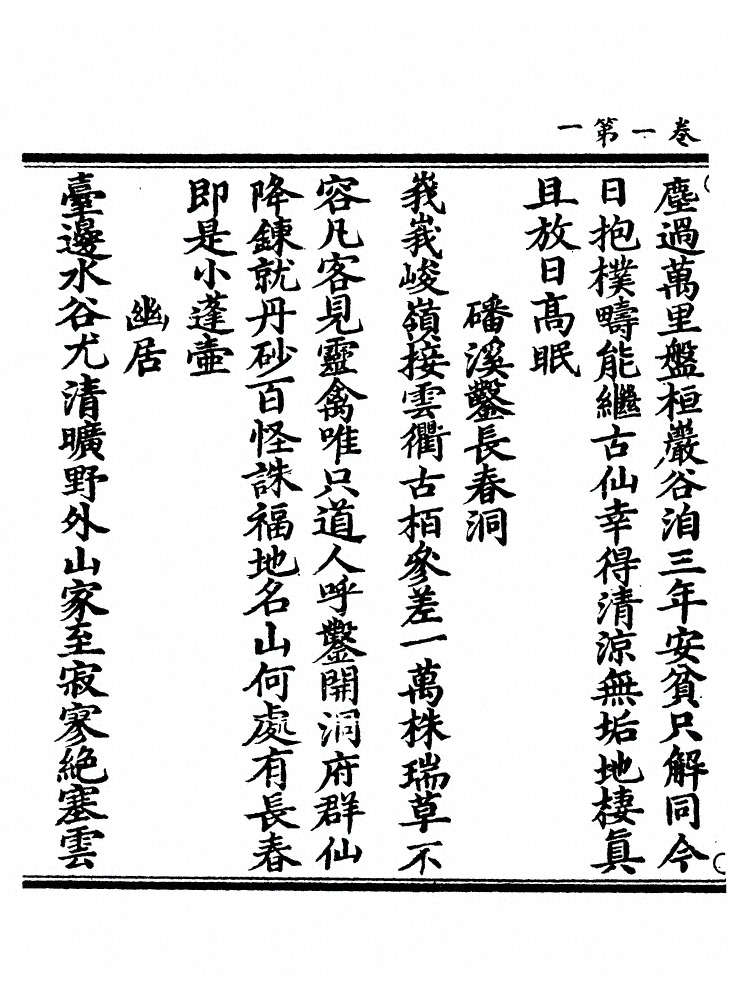 卷一第一
塵過萬里盤桓巖谷洎三年安貧只解同今
日抱樸疇能繼古仙幸得清涼無垢地棲真
且放日高眠
磻溪鑿長春洞
峩峩峻嶺接雲衢古栢參差一萬株瑞草不
容凡客見靈禽唯只道人呼鑿開洞府群仙
降鍊就丹砂百怪誅福地名山何處有長春
即是小蓬壷
幽居
臺邊水谷尤清曠野外山家至寂寥絶塞雲